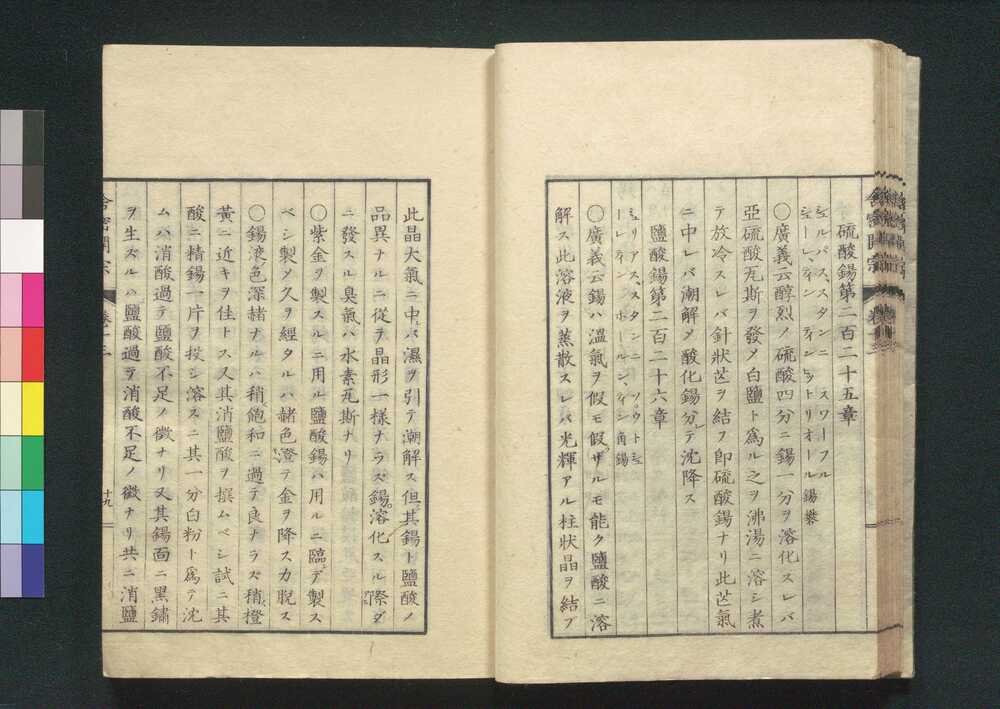 硫酸錫第二百二十五章
シュルパス、スタンニ スワーフル
シューレ、テイン テイン、ヒットリオール 錫礬
○廣義云醇烈ノ硫酸四分ニ錫一分ヲ溶化スレバ
亞硫酸瓦斯ヲ發メ白鹽ト為ル之ヲ沸湯ニ溶シ煮
テ放冷スレバ針狀芒ヲ結フ即硫酸錫ナリ此芒氣
ニ中レバ潮解メ酸化錫分レテ沈降ス
鹽酸錫第二百二十六章
ミュリアス、スタンニ ソウトシュ
ーレ、テイン ホールン、テイン 角錫
○廣義云錫ハ溫氣ヲ假モ假ザルモ能ク鹽酸ニ溶
解ス此溶液ヲ蒸散スレバ光輝アル柱狀晶ヲ結ブ
此晶大氣ニ中レバ濕ヲ引テ潮解ス但其錫ト鹽酸ノ
品異ナルニ從ヲ晶形一樣ナラズ錫溶化スルノ際ダ
ニ發スル臭氣ハ水素瓦斯ナリ
○紫金ヲ製スルニ用ル鹽酸錫ハ用ルニ臨テ製ス
ベシ製メ久ヲ經タルハ赭色澄テ金ヲ降スカ脫ス
○錫液色深赭ナルハ稍飽和ニ過テ良ナラズ稍橙
黃ニ近キヲ佳トス又其消鹽酸ヲ撰ムベシ試ニ其
酸ニ精錫一片ヲ投シ溶スニ其一分白粉ト為テ沈
ムハ消酸過テ鹽酸不足ノ徵ナリ又其錫面ニ黑鏽
ヲ生ズルハ鹽酸過テ消酸不足ノ徵ナリ共ニ消鹽
舍密開宗 卷十二
十九